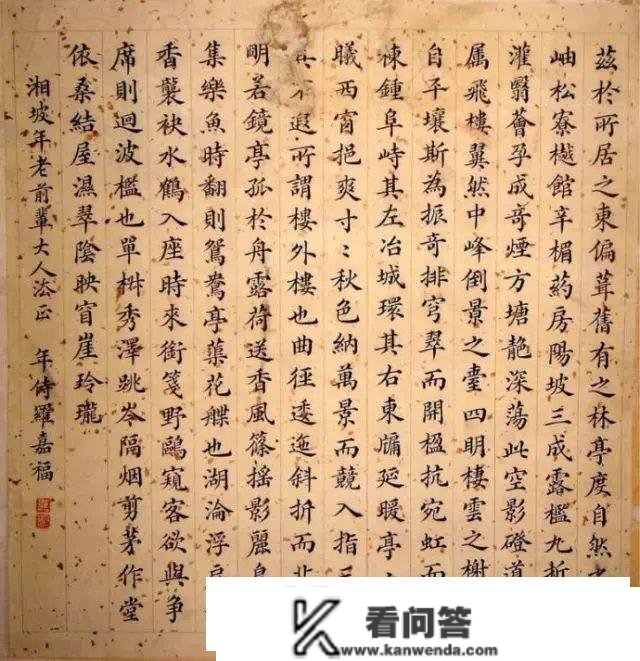 茲於所居之東偏葺舊有之林亭度自然之
岫松寮樾館辛楣葯房陽坡三成露檻九折
灌翳薈孕成奇煙方塘靘深蕩此空影磴道
属飛樓翼然中峰倒景之臺四明棲雲之榭
自平壤斯為振奇排穹翠而開楹抗宛虹而
棟鍾阜峙其左冶城環其右東牖延暖亭
曦西窗挹爽寸〻秋色納萬景而競入指三
不遐所謂樓外樓也曲徑逶迤斜折而北
明若鏡亭孤於舟露荷送香風篠搖影麗
集樂魚時翻則鴛鴦亭蕖花艓也湖淪浮
香襲袂水鶴入座時來銜箋野鷗窺客欲與爭
席則迴波檻也單椒秀澤跳岑隔烟剪茅作堂
依桑結屋濕翠陰映窅崖玲瓏
湘坡年老前輩大人法正 年侍羅嘉福
K 看问答
www.kanwenda.com